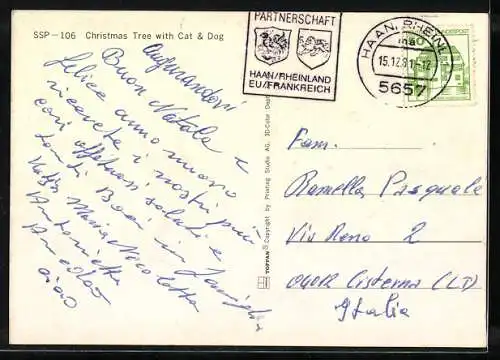 SSP-106 Christmas Tree with Cat & Dog
PARTNERSCHAFT
HAAN/RHEINLAND
EU/FRANKREICH
HAAN, RHEINL
15.12.81-12
5657
Augurandovi
Buon Natale e
felice anno nuovo
ricevete i nostri più
cari affettuosi saluti e
tanti Baci in famiglia
Maria Nicoletta
Antonietta
ciao
TOPPAN ® Copyright by Printing Studio AG. 3D-Color
Fam.
Ramella Pasquale
Via Reno 2
04012 Cisterna (LT)
Italia